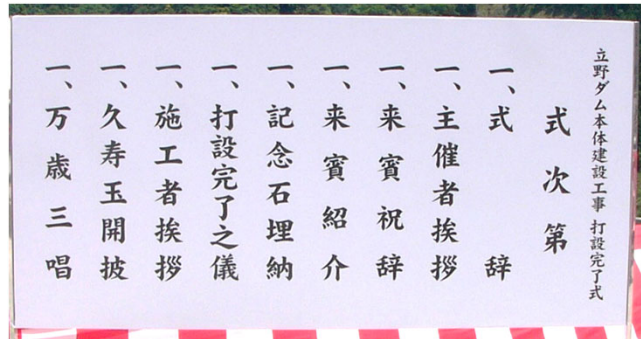 立野ダム本体建設工事 打設完了式
式次第
一、式辞
一、主催者挨拶
一、来賓祝辞
一、来賓紹介
一、記念石埋納
一、打設完了之儀
一、施工者挨拶
一、久寿玉開披
一、万歳三唱